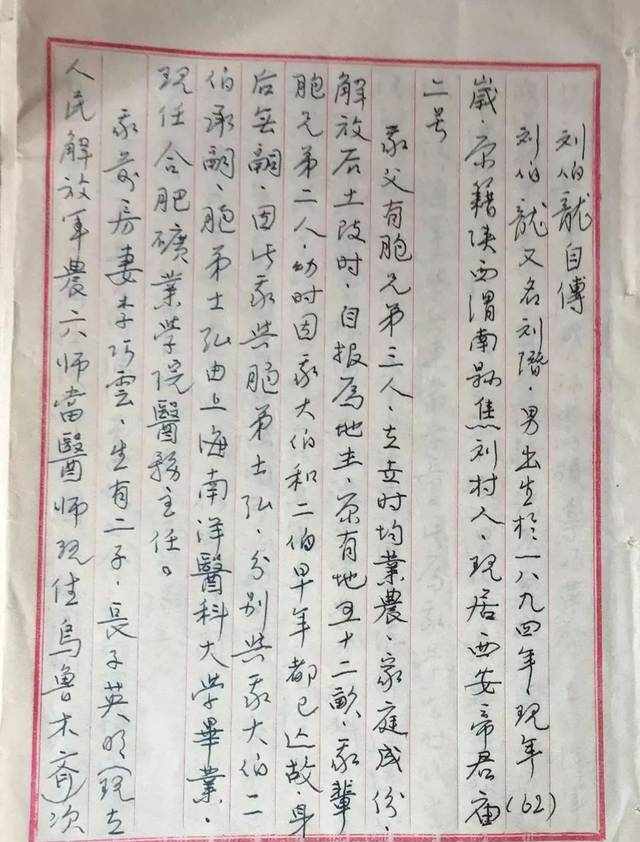 刘伯龍自傳
刘伯龍又名刘潛．男出生於一八九四年．現年(62)
歲．原籍陕西渭南縣焦刘村人．現居西安帝君庙
二号
我父有胞兄弟三人．在世时均業農．家庭成份．
解放后土改时．自报爲地主．原有地五十二畝．我輩
胞兄弟二人．幼时因我大伯和二伯早年都已亡故身
后無嗣．因此我與胞弟士弘．分别與我大伯二
伯承嗣．胞弟士弘由上海南洋醫科大学畢業．
現任合肥礦業学院醫務主任。
我前房妻李巧雲．生有二子．長子英明(現在
人民解放军農六师當醫师現住烏鲁木齊)次